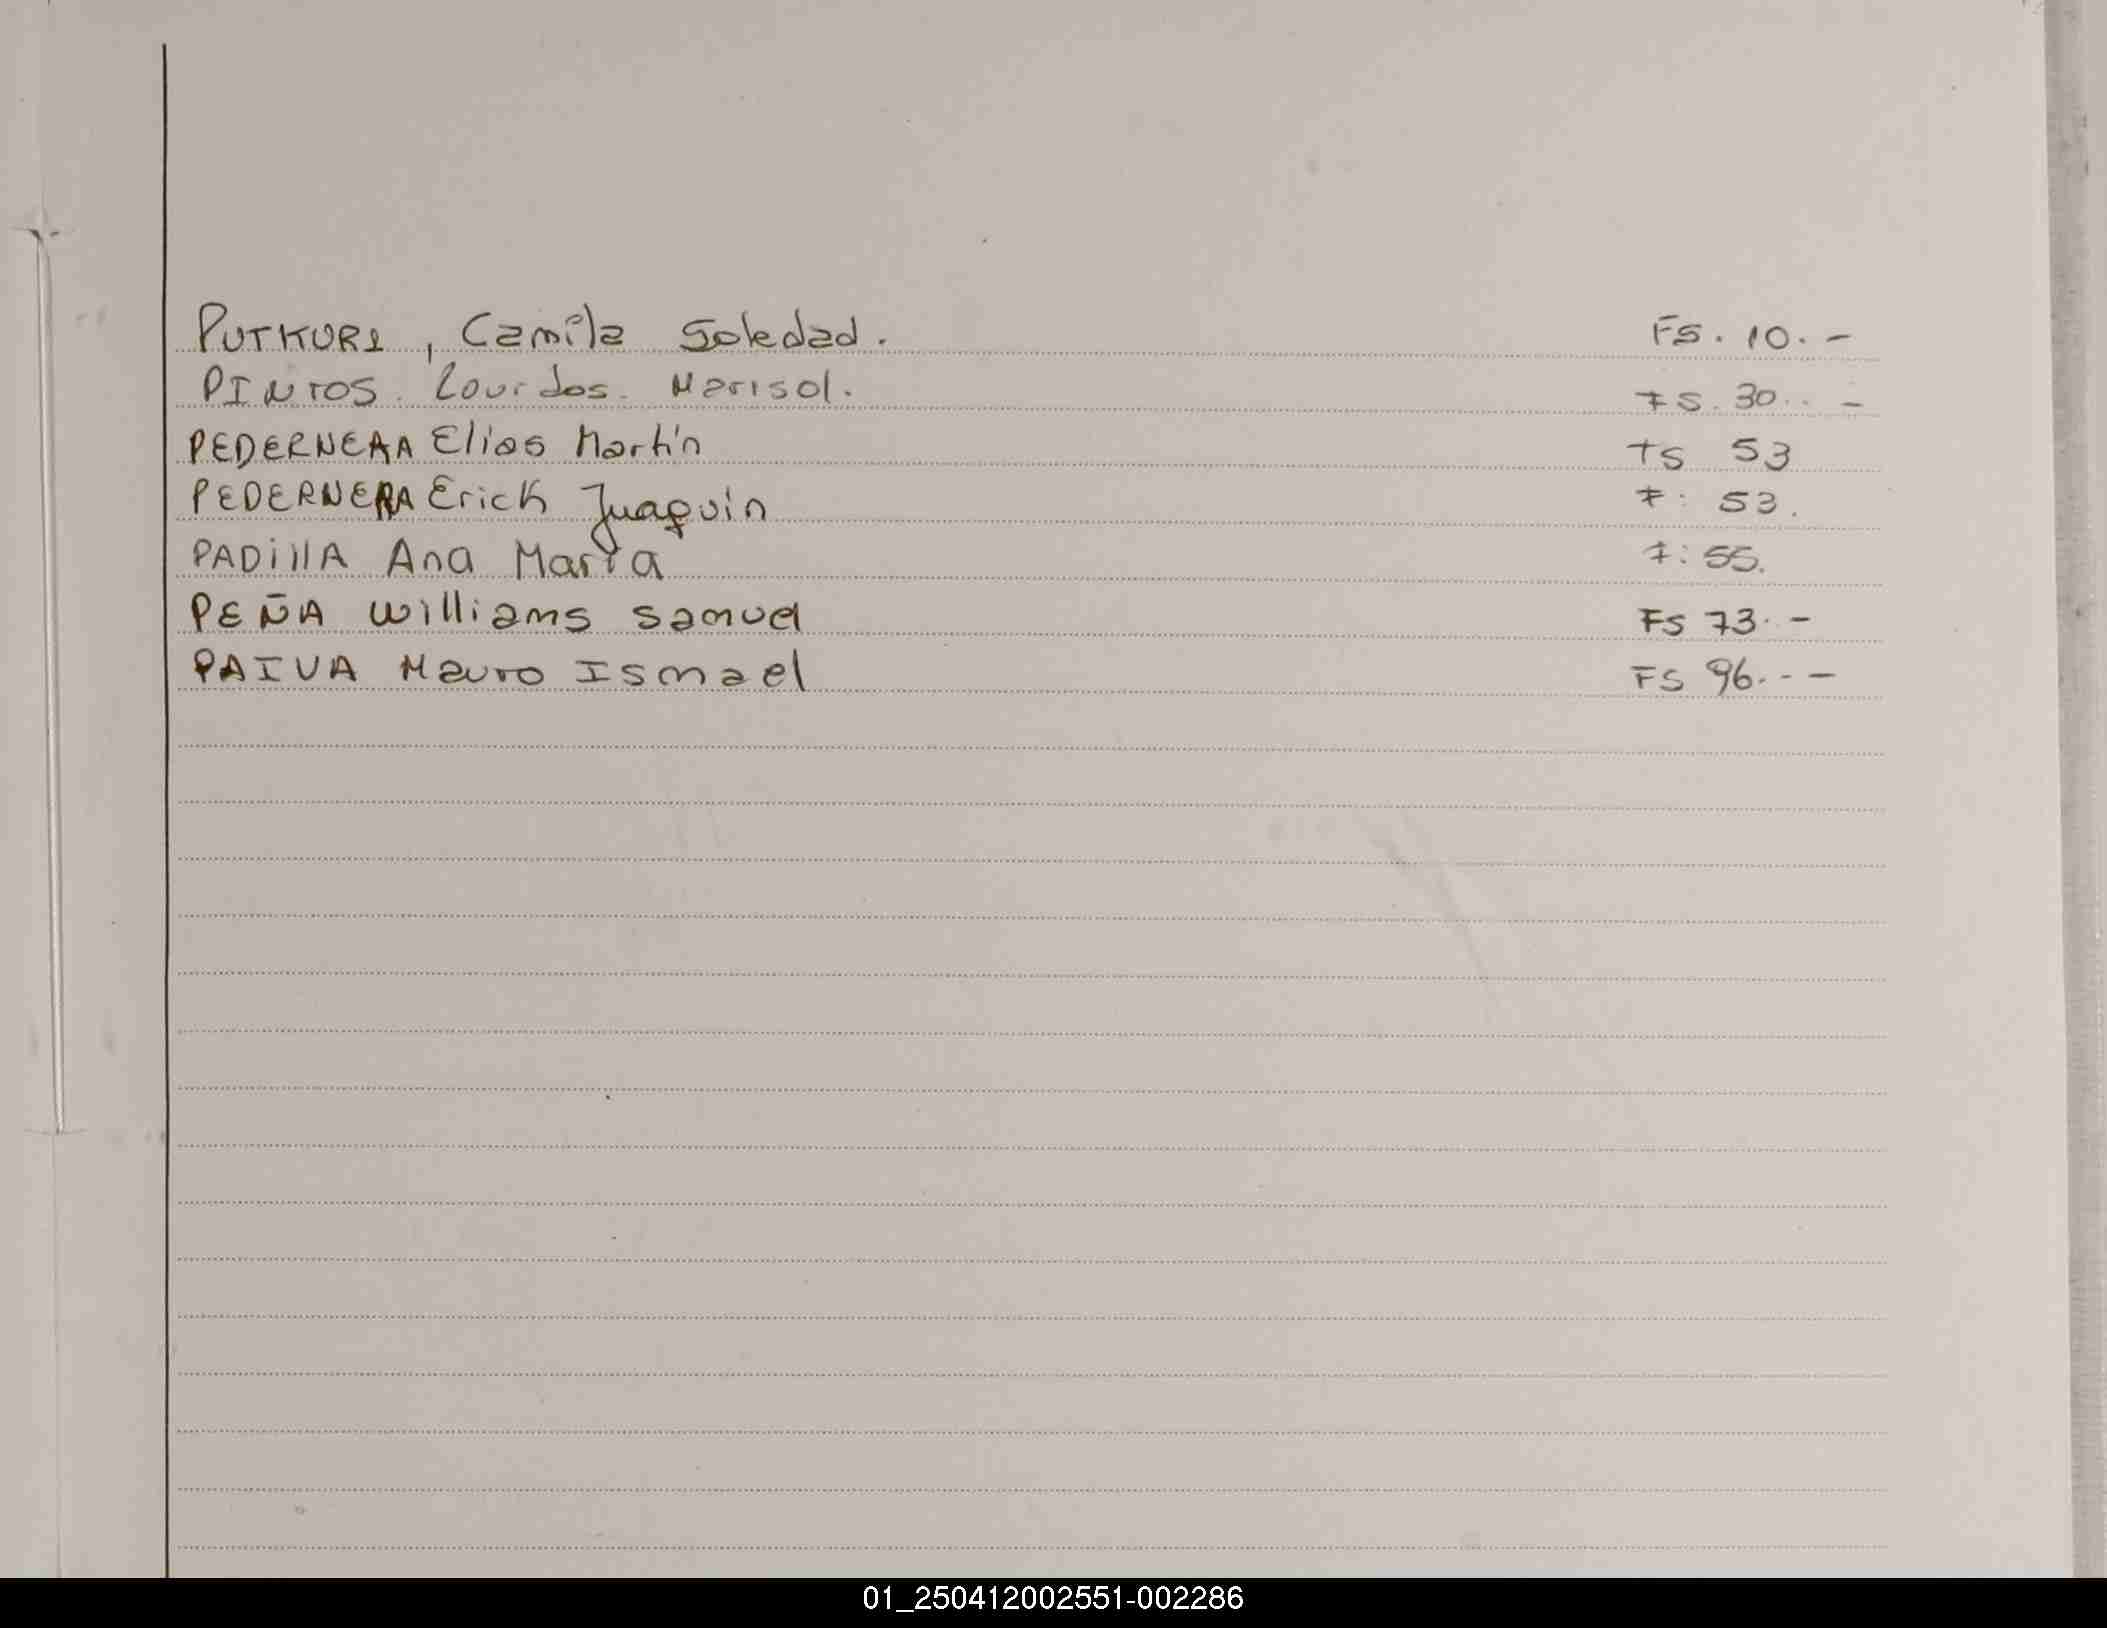 PUTKURI, Camila Soledad. Fs. 10. -
PINTOS. Lourdes. Marisol. Fs. 30.. -
PEDERNERA Elias Martín Fs 53
PEDERNERA Erick Juaquin F: 53.
PADillA Ana María F: 55.
PEÑA Williams Samuel Fs 73. -
PAIVA Mauro Ismael FS 96.. -
01_250412002551-002286